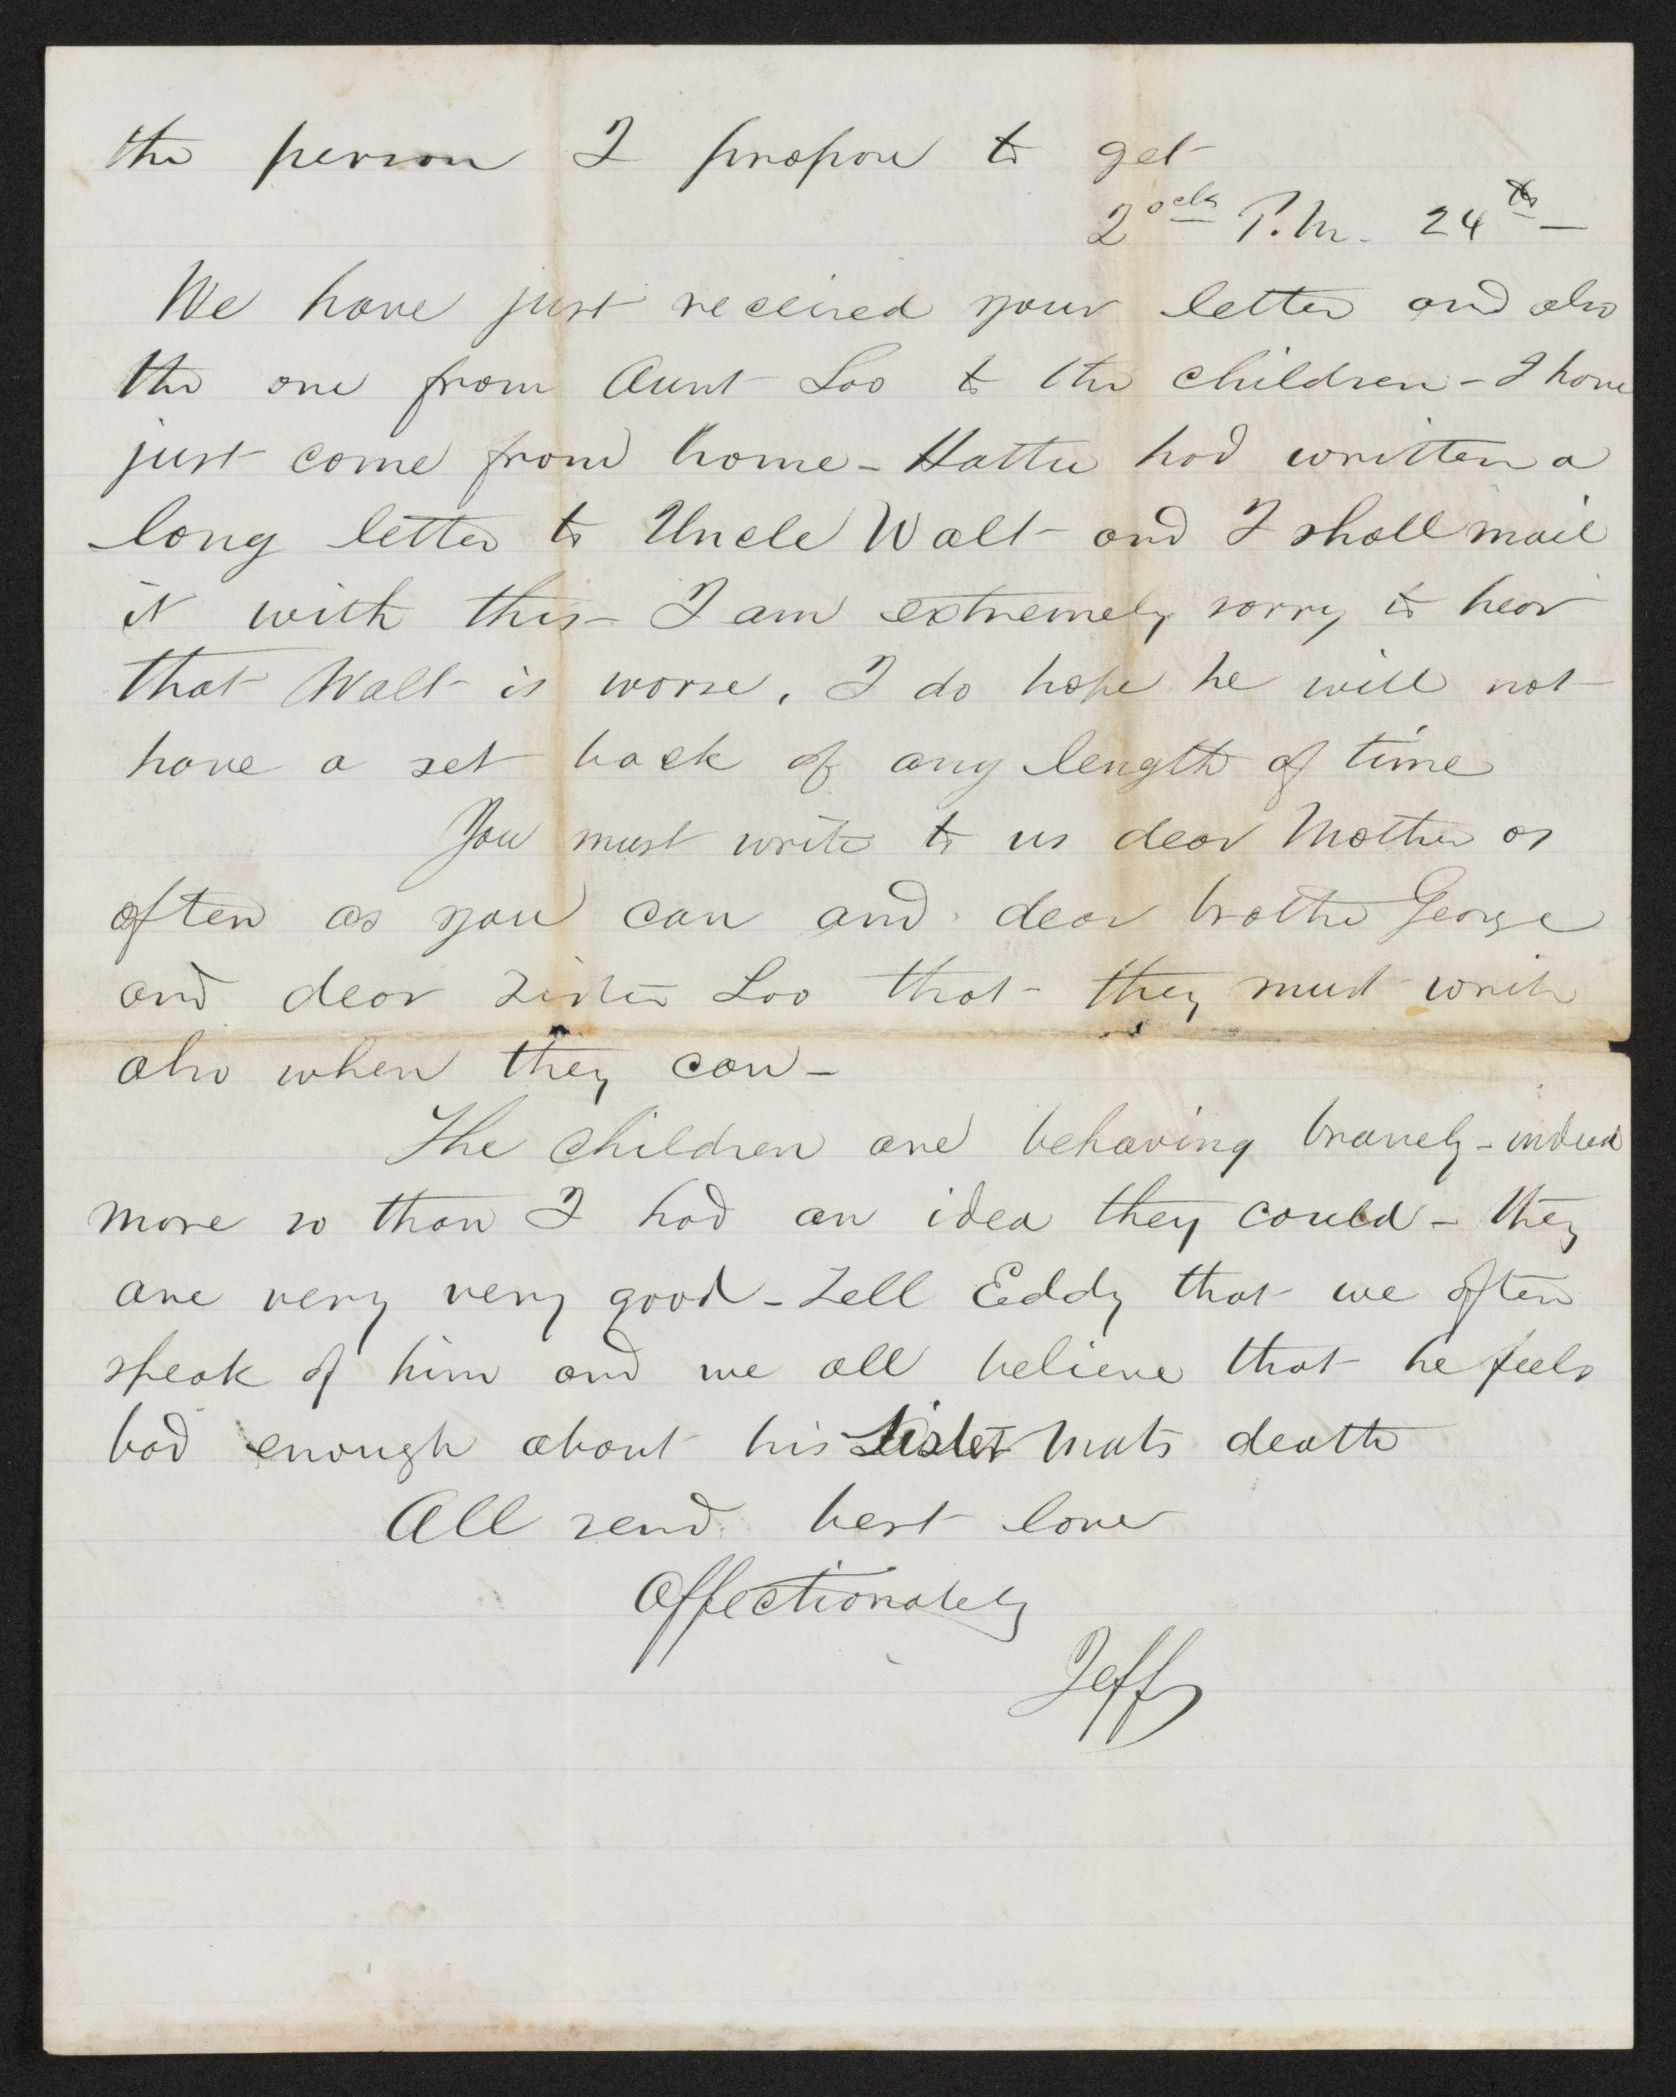 the person I propose to get
2 ock P.M. 24th —
We have just received your letter and also
the one from Aunt Loo to the children - I have
just come from home - Hattie had written a
long letter to Uncle Walt and I shall mail
it with this - I am extremely sorry to hear
that Walt is worse, I do hope he will not
have a set back of any length of time
You must write to us dear Mother as
often as you can and dear brother George
and dear sister Loo that they must write
also when they can -
The children are behaving bravely - indeed
more so than I had an idea they could - they
are very very good - Tell Eddy that we often
speak of him and we all believe that he feels
bad enough about his Sister Mats death
All send best love
Affectionately
Jeff